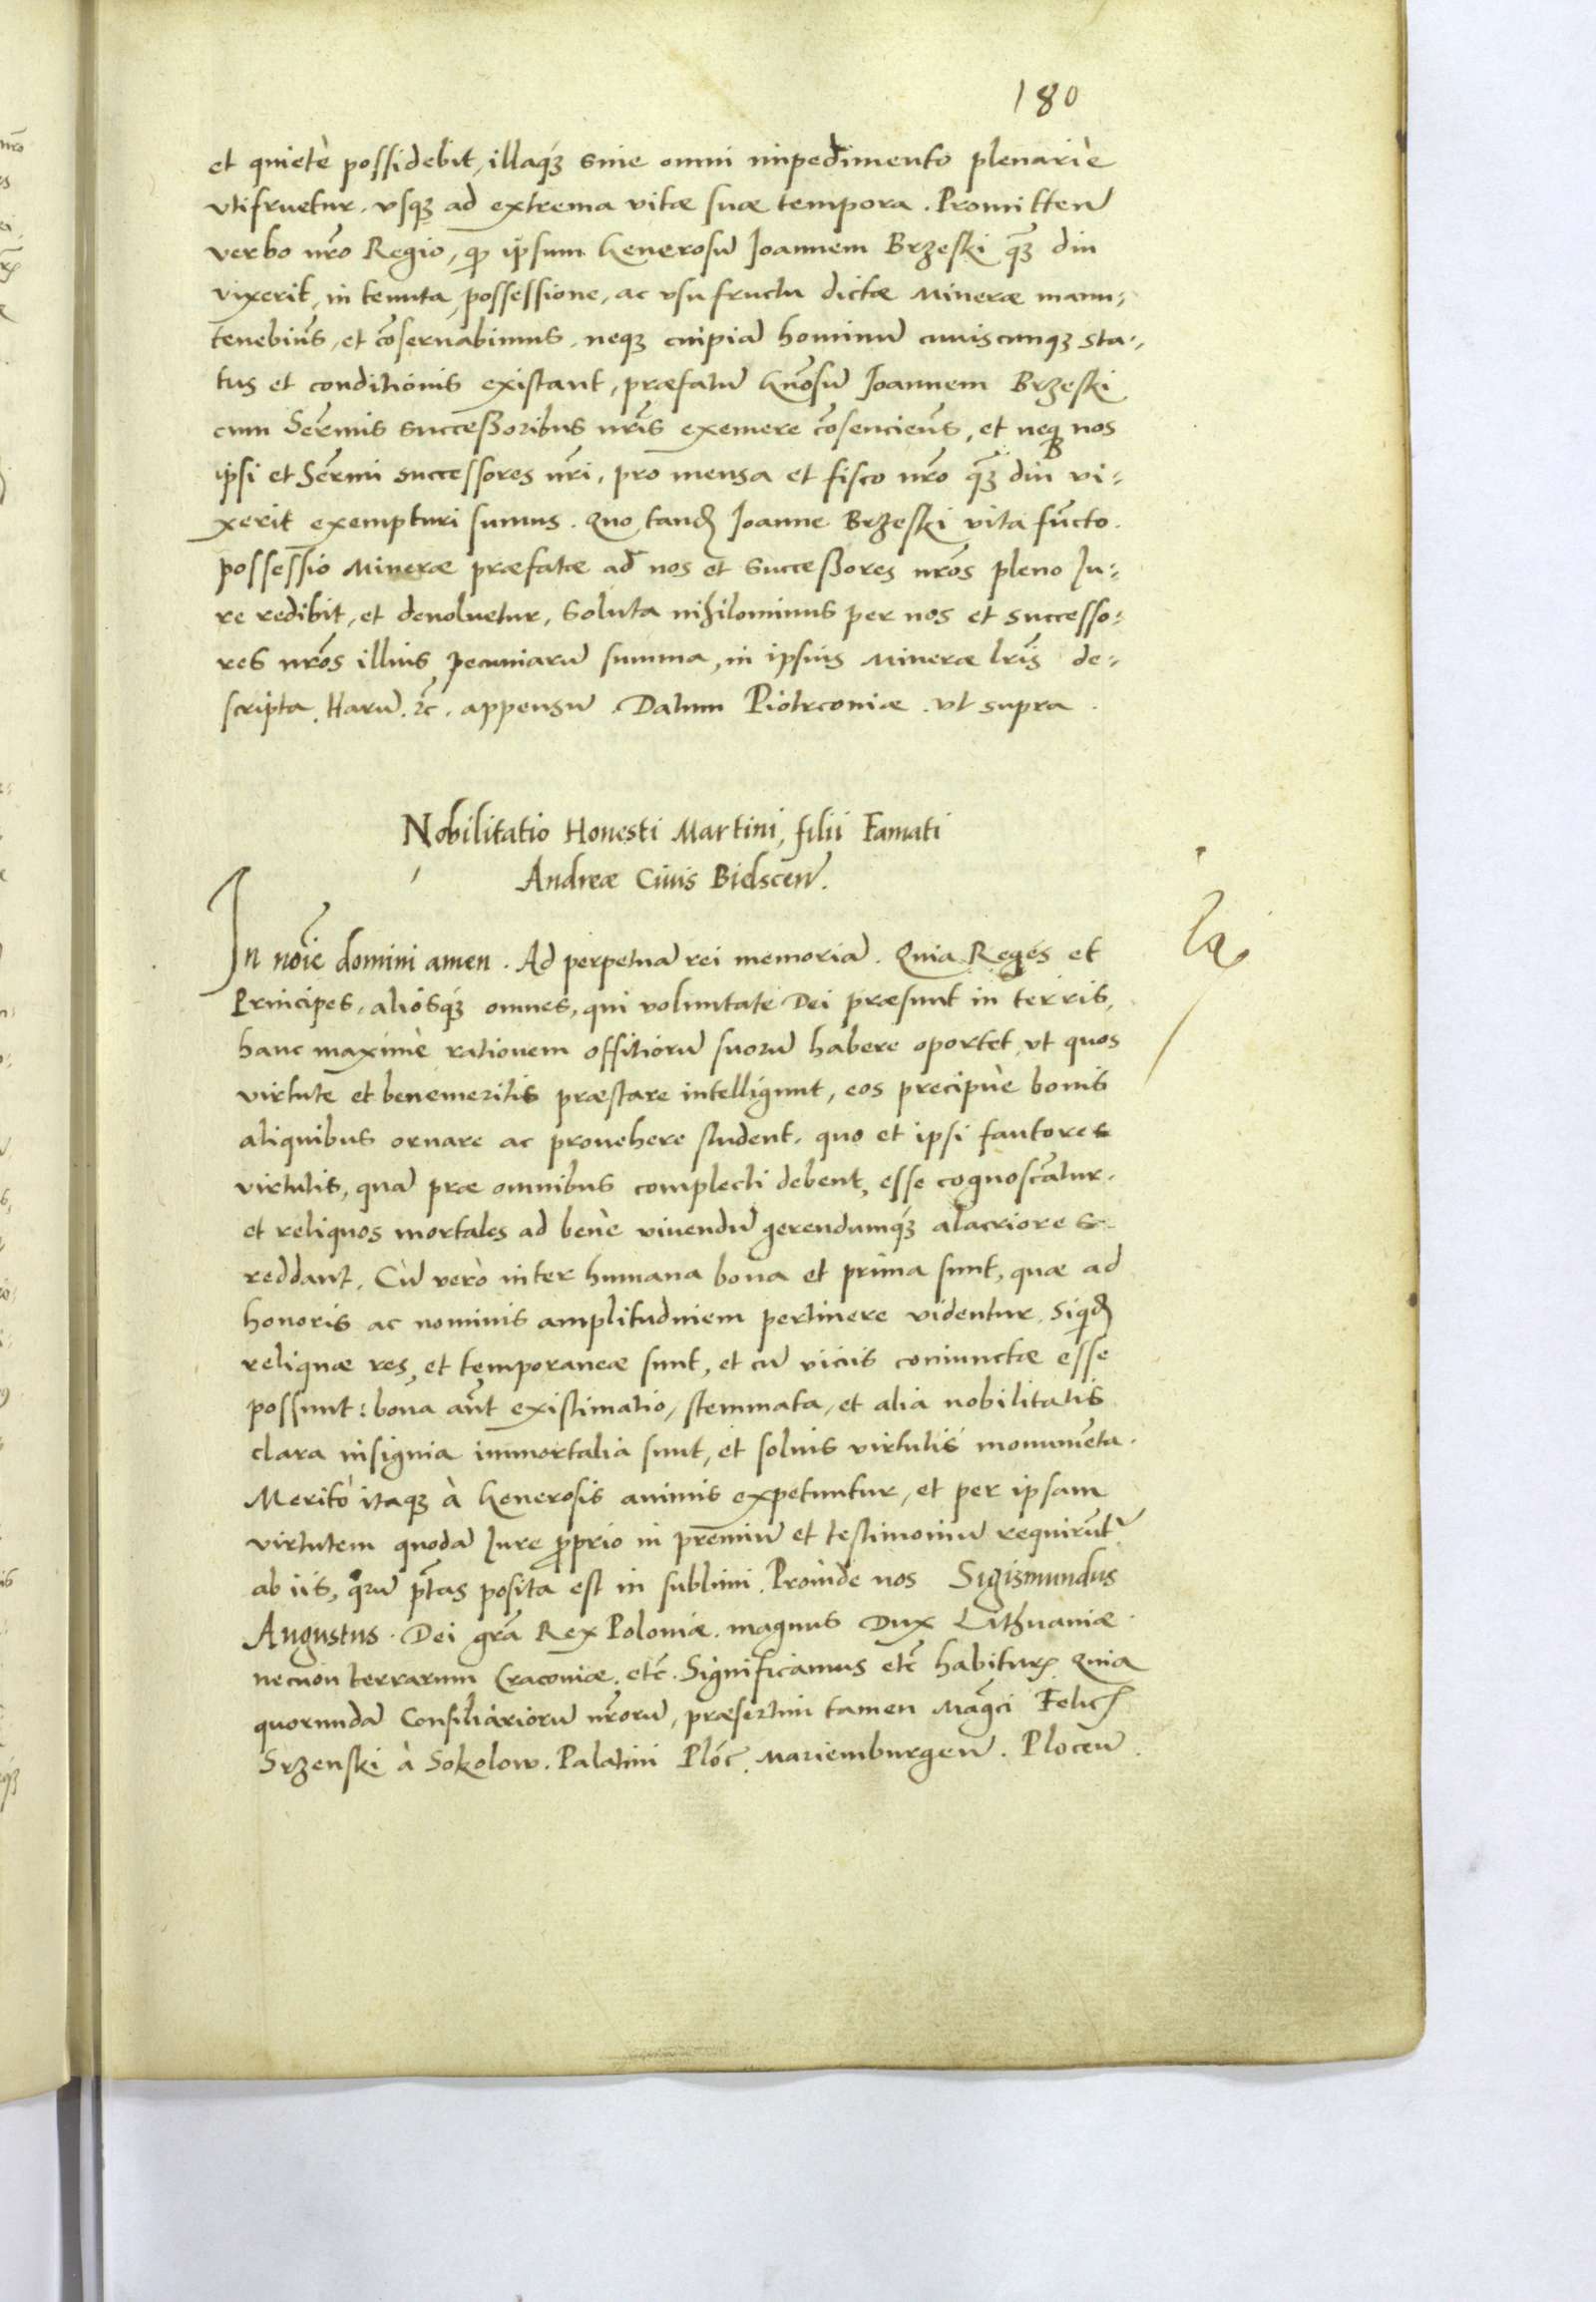 180
et quietè possidebit, illaq́3 sine omni impedimento plenariè
vtifruetur. vsq3 ad extrema vitæ suæ tempora. Promitteñ
verbo nr̃o Regio, ꝙ ipsum Generosũ Joannem Brzeski q̃3 diu
vixerit, in tenuta, possessione, ac vsufructu dictæ Mineræ manu-
tenebim̃s, et cõseruabimus, neq3 cuipiã hominũ cuiuscunq3 sta-
tus et conditionis existant, præfatũ Gñosũ Joannem Brzeski
cum Ser̃mis successoribus nr̃is exemere cõsenciem̃s, et neq3 nos
ipsi et Ser̃mi successores nr̃i, pro mensa et fisco nr̃o q̃3 diu vi-
xerit exempturi sumus. Quo tandẽ Joanne Brzeski vita fũcto.
possessio Mineræ præfatæ ad nos et successores nr̃os pleno Ju-
re redibit, et deuoluetur, soluta nihilominus per nos et successo-
res nr̃os illius pecuniarũ summa, in ipsius Mineræ lr̃is de-
scripta. Harũ. ꝛc̃. appensũ. Datum Piotrconiæ. vt supra.
Nobilitatio Honesti Martini, filii Famati
Andreæ Ciuis Bielsceñ.
In noĩe domini amen. Ad perpetuã rei memoriã. Quia Reges et
Principes, aliosq́3 omnes, qui voluntate Dei præsunt in terris,
hanc maximè rationem offitiorũ suorũ habere oportet, vt quos
virtute et benemeritis præstare intelligunt, eos precipuè bonis
aliquibus ornare ac prouehere student, quo et ipsi fautores
virtutis, quã præ omnibus complecti debent, esse cognoscãtur.
et reliquos mortales ad benè viuendũ gerendumq́3 alacriores
reddant. Cũ verò inter humana bona et prima sunt, quæ ad
honoris ac nominis amplitudinem pertinere videntur. Siqd̃
reliquæ res, et temporaneæ sunt, et cũ viciis coniunctæ esse
possunt: bona aũt existimatio, stemmata, et alia nobilitatis
clara insignia immortalia sunt, et solius virtutis monumẽta.
Meritò itaq3 à Generosis animis expetuntur, et per ipsam
virtutem quodã Jure ꝓprio in prẽmiũ et testimoniũ requirũt̃
ab iis, quorũ ptãs posita est in sublimi. Proinde nos Sigismundus
Augustus. Dei grã Rex Poloniæ. magnus Dux Lithuaniæ.
necnon terrarum Cracoviæ. etc̃. Significamus etc̃ habiturꝭ Quia
quorundã Consiliariorũ nr̃orũ, præsertim tamen Mag̃ci Felicꝭ
Srzenski à Sokolow. Palatini Ploc̃. Mariemburgeñ. Ploceñ.